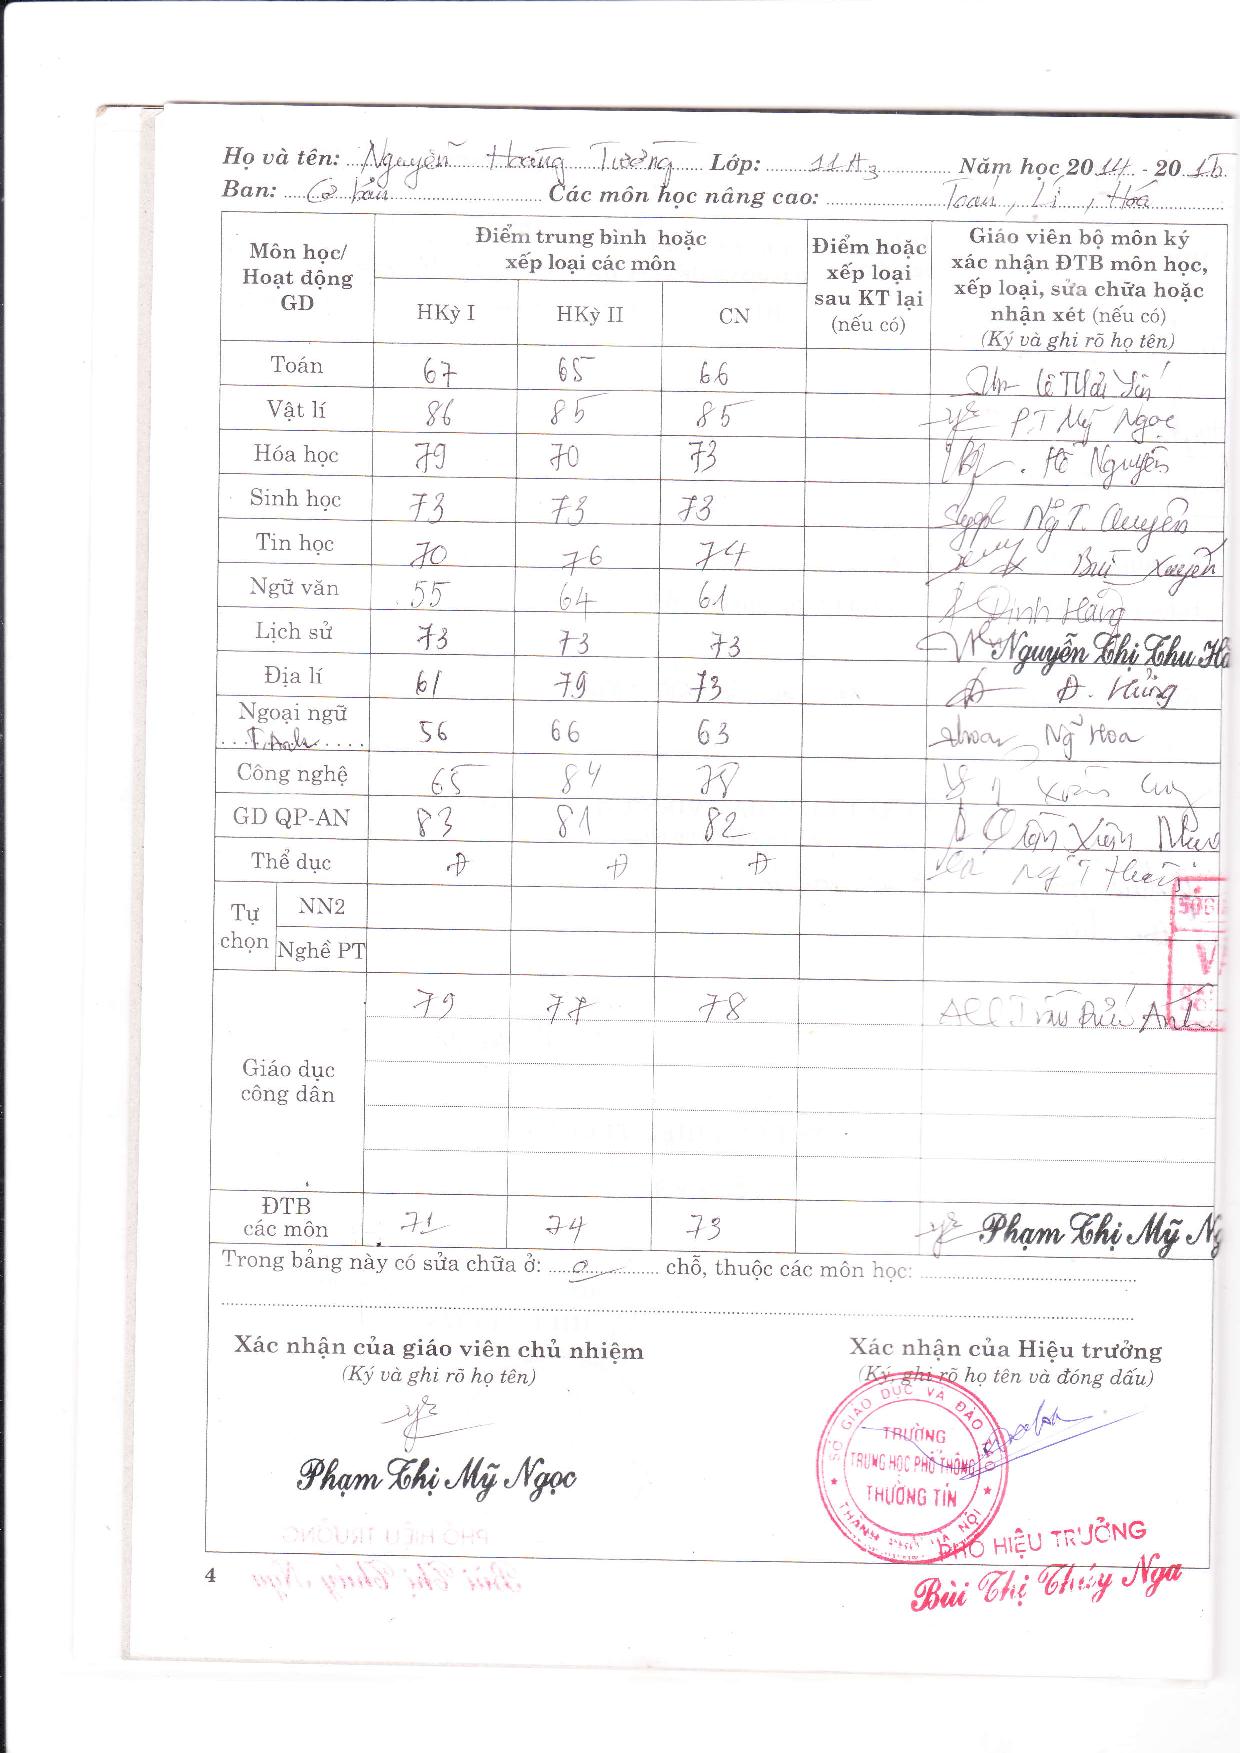 Họ và tên: Nguyễn Hoàng Tưởng Lớp: 11A3 Năm học 2014 - 2015
Ban: Cơ bản Các môn học nâng cao: Toán, Lí, Hoá
Môn học/ Hoạt động GD
Điểm trung bình hoặc xếp loại các môn
Điểm hoặc xếp loại sau KT lại (nếu có)
Giáo viên bộ môn ký xác nhận ĐTB môn học, xếp loại, sửa chữa hoặc nhận xét (nếu có) (Ký và ghi rõ họ tên)
HKỳ I HKỳ II CN
Toán 67 65 66 Lê Thái Yên
Vật lí 86 85 85 P.T Mỹ Ngọc
Hóa học 79 70 73 Hồ Nguyễn
Sinh học 73 73 73 Ng T. Quyên
Tin học 70 76 74 Bùi Xuyến
Ngữ văn 55 64 61 Đinh Hằng
Lịch sử 73 73 73 Nguyễn Thị Thu Hà
Địa lí 61 79 73 Đ. Hưng
Ngoại ngữ T. Anh 56 66 63 Ng Hoa
Công nghệ 65 84 78
GD QP-AN 83 81 82 Trần Xuân
Thể dục Đ Đ Đ
Tự chọn
NN2
Nghề PT
Giáo dục công dân 79 77 78 Trần Đức Anh
ĐTB các môn 71 74 73 Phạm Thị Mỹ Ng
Trong bảng này có sửa chữa ở: 0 chỗ, thuộc các môn học:
Xác nhận của giáo viên chủ nhiệm
(Ký và ghi rõ họ tên)
Phạm Thị Mỹ Ngọc
Xác nhận của Hiệu trưởng
(Ký, ghi rõ họ tên và đóng dấu)
SỞ GIÁO DỤC VÀ ĐÀO
TRƯỜNG
TRUNG HỌC PHỔ THÔNG
THƯỜNG TÍN
THÀNH PHỐ HÀ NỘI
PHÓ HIỆU TRƯỞNG
Bùi Thị Thúy Nga
4